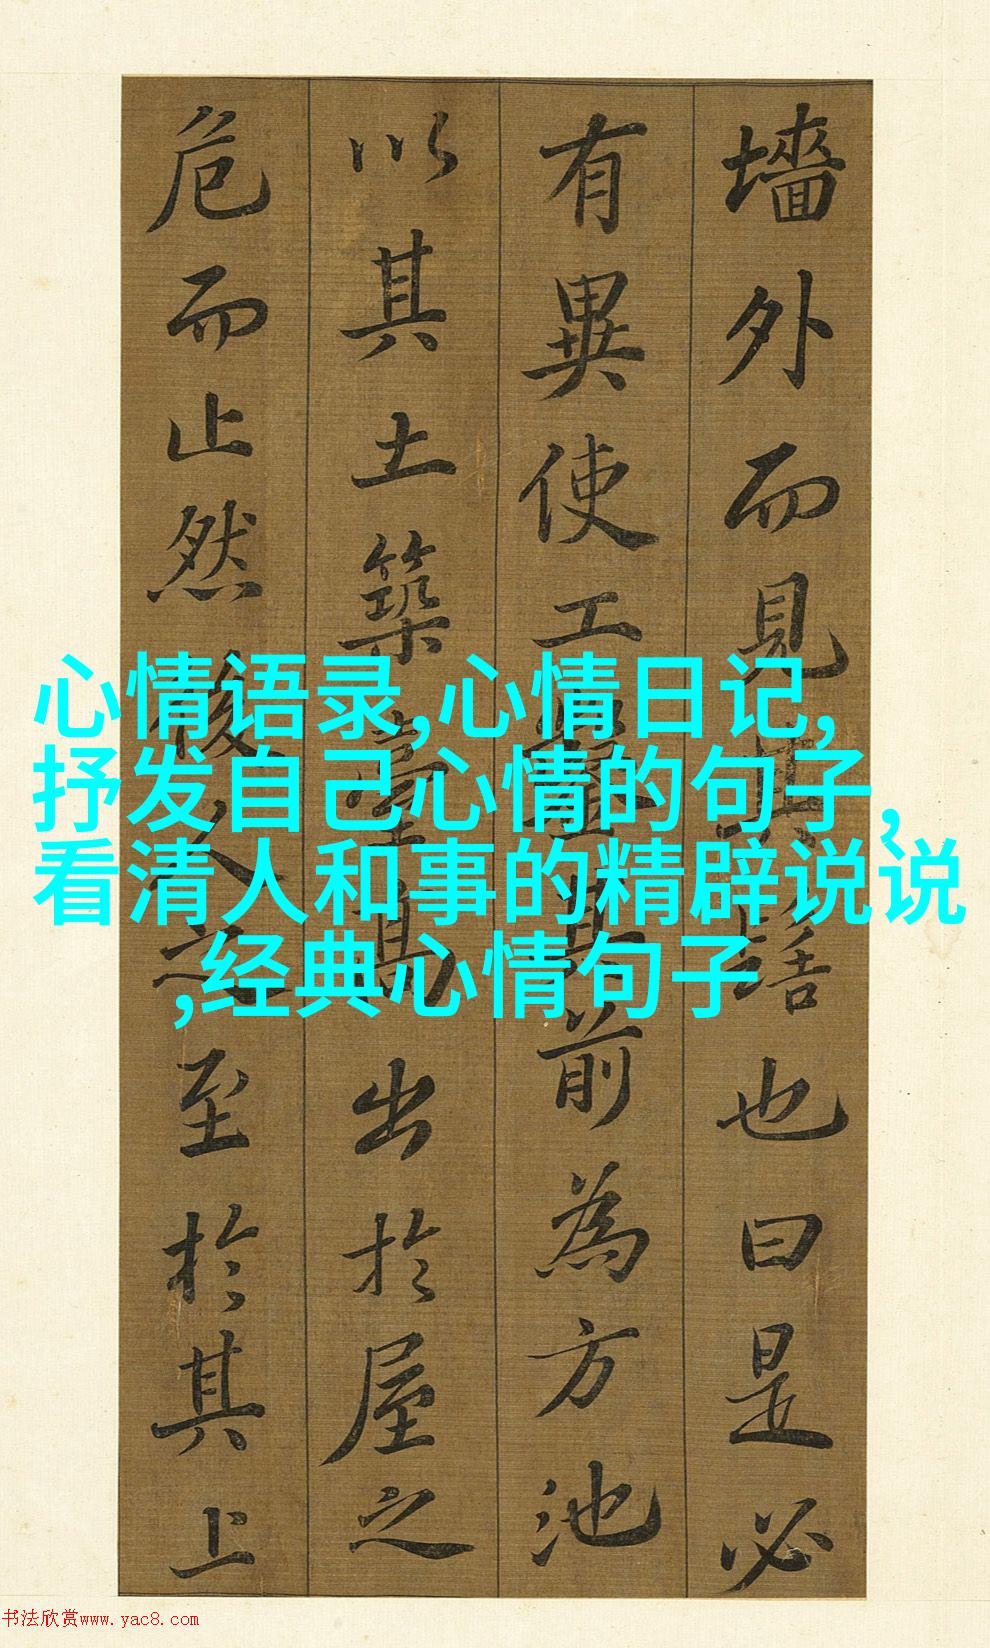 墻外而見其髻也曰是必
有異使工鑿其前為方池
以其土築臺高出於屋之
危而止然後人之至於其上
心情语录,心情日记,
抒发自己心情的句子,
看清人和事的精辟说说
,经典心情句子
书法欣赏www.yac8.com